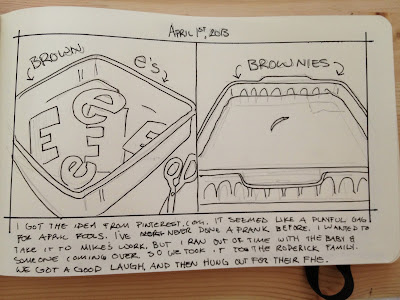 APRIL 1ST, 2013
BROWN
e's
E E e e
BROWNIES
I GOT THE IDEA FROM PINTEREST.COM. IT SEEMED LIKE A PLAYFUL GAG
FOR APRIL FOOLS. I'VE NEVER DONE A PRANK BEFORE. I WANTED TO
TAKE IT TO MIKE'S WORK. BUT I RAN OUT OF TIME WITH THE BABY &
SOMEONE COMING OVER. SO WE TOOK IT TO THE RODERICK FAMILY.
WE GOT A GOOD LAUGH, AND THEN HUNG OUT FOR THEIR FHE.